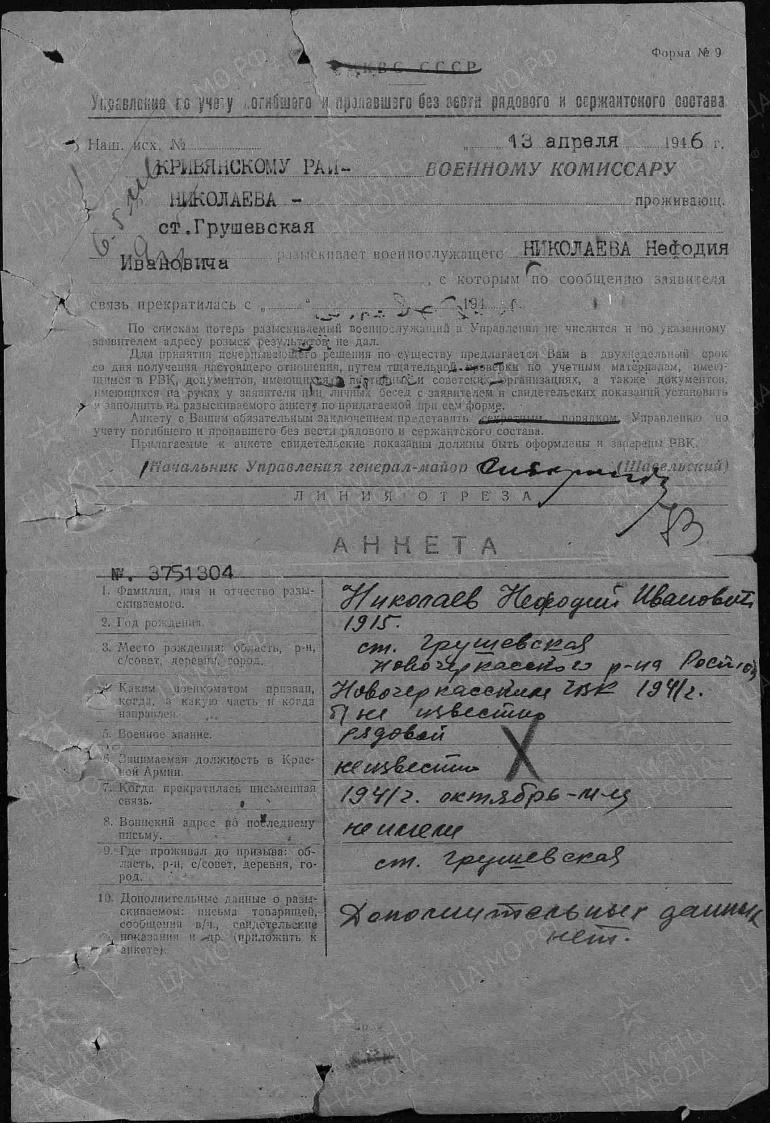 Форма № 9
НКВС СССР
Управление по учету погибшего и пропавшего без вести рядового и сержантского состава
Наш. исх. №
„ 13 апреля 1946 г.
КРИВЯНСКОМУ РАЙ- ВОЕННОМУ КОМИССАРУ
НИКОЛАЕВА - проживающ.
ст.Грушевская
разыскивает военнослужащего НИКОЛАЕВА Нефодия
Ивановича
, с которым по сообщению заявителя
связь прекратилась с „ “ 194 г.
По спискам потерь разыскиваемый военнослужащий в Управлении не числится и по указанному
заявителем адресу розыск результатов не дал.
Для принятия исчерпывающего решения по существу предлагается Вам в двухнедельный срок
со дня получения настоящего отношения, путем тщательной проверки по учетным материалам, имею-
щимся в РВК, документов, имеющихся в партийных и советских организациях, а также документов,
имеющихся на руках у заявителя или личных бесед с заявителем и свидетельских показаний установить
и заполнить на разыскиваемого анкету по прилагаемой при сем форме.
Анкету с Вашим обязательным заключением представить секретным порядком Управлению по
учету погибшего и пропавшего без вести рядового и сержантского состава.
Прилагаемые к анкете свидетельские показания должны быть оформлены и заверены РВК.
Начальник Управления генерал-майор (Шавельский)
ЛИНИЯ ОТРЕЗА
АНКЕТА
№. 3751304
1. Фамилия, имя и отчество разы-
скиваемого.
Николаев Нефодий Иванович
2. Год рождения.
1915.
3. Место рождения: область, р-н,
с/совет, деревня, город.
ст. Грушевская
Новочеркасского р-на
4. Каким военкоматом призван,
когда, в какую часть и когда
направлен.
Новочеркасским ГВК 1941г.
не известно
5. Военное звание.
рядовой
6. Занимаемая должность в Крас-
ной Армии.
неизвестно
7. Когда прекратилась письменная
связь.
1941г. октябрь-м-ц
8. Воинский адрес по последнему
письму.
не имели
9. Где проживал до призыва: об-
ласть, р-н, с/совет, деревня, го-
род.
ст. Грушевская
10. Дополнительные данные о разы-
скиваемом: письма товарищей,
сообщения в/ч., свидетельские
показания и др. (приложить к
анкете).
Дополнительных данных
нет.
ЦАМО РФ
ПАМЯТЬ
НАРОДА